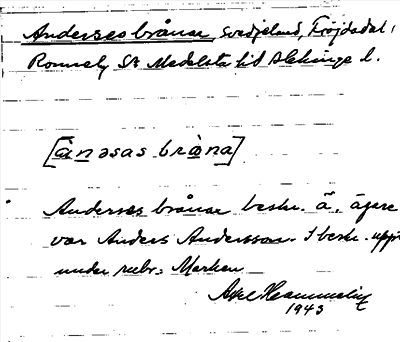 Anderses brånar, svedjeland, Fröjdadal,
Ronneby Sn Medelsta hd Blekinge l.
[ànəsas bràna]
Anderses brånar beskr. ä. ägare
var Anders Andersson. I beskr. uppt
under rubr: Marken
Axel
1943